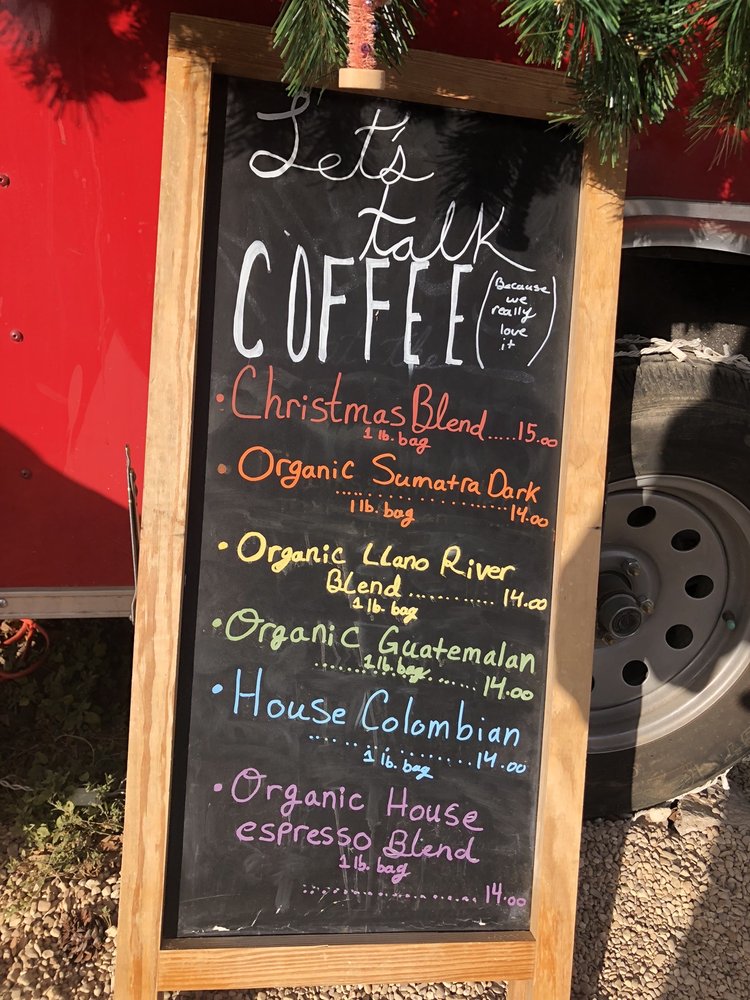 Let's
talk
COFFEE (Because
we
really
love
it)
• Christmas Blend.....15.00
1 lb. bag
• Organic Sumatra Dark
....................14.00
1 lb. bag
• Organic Llano River
Blend............14.00
1 lb. bag
• Organic Guatemalan
....................14.00
1 lb. bag
• House Colombian
....................14.00
1 lb. bag
• Organic House
espresso Blend
1 lb. bag
....................14.00